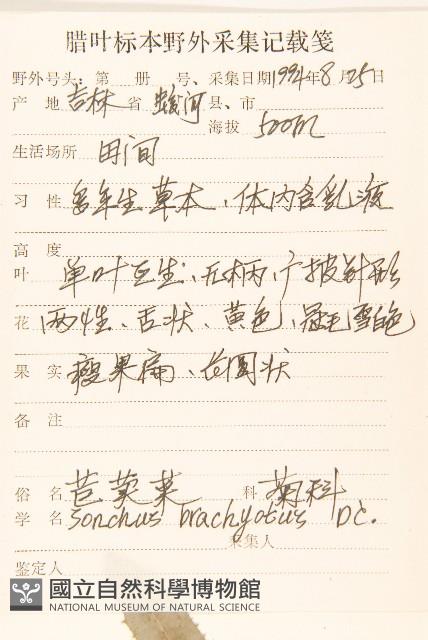 腊叶标本野外采集记载笺
野外号头：第 册 号、采集日期1994年8月25日
产 地 吉林 省 蛟河 县、市
海拔 500m
生活场所 田间
习 性 多年生草本、体内含乳液
高 度
叶 单叶互生、无柄、广披针形
花 两性、舌状、黄色、冠毛雪白色
果 实 瘦果扁、长圆状
备 注
俗 名 苣荬菜 科 菊科
学 名 Sonchus brachyotus DC.
采集人
鉴定人
國立自然科學博物館
NATIONAL MUSEUM OF NATURAL SCIENCE